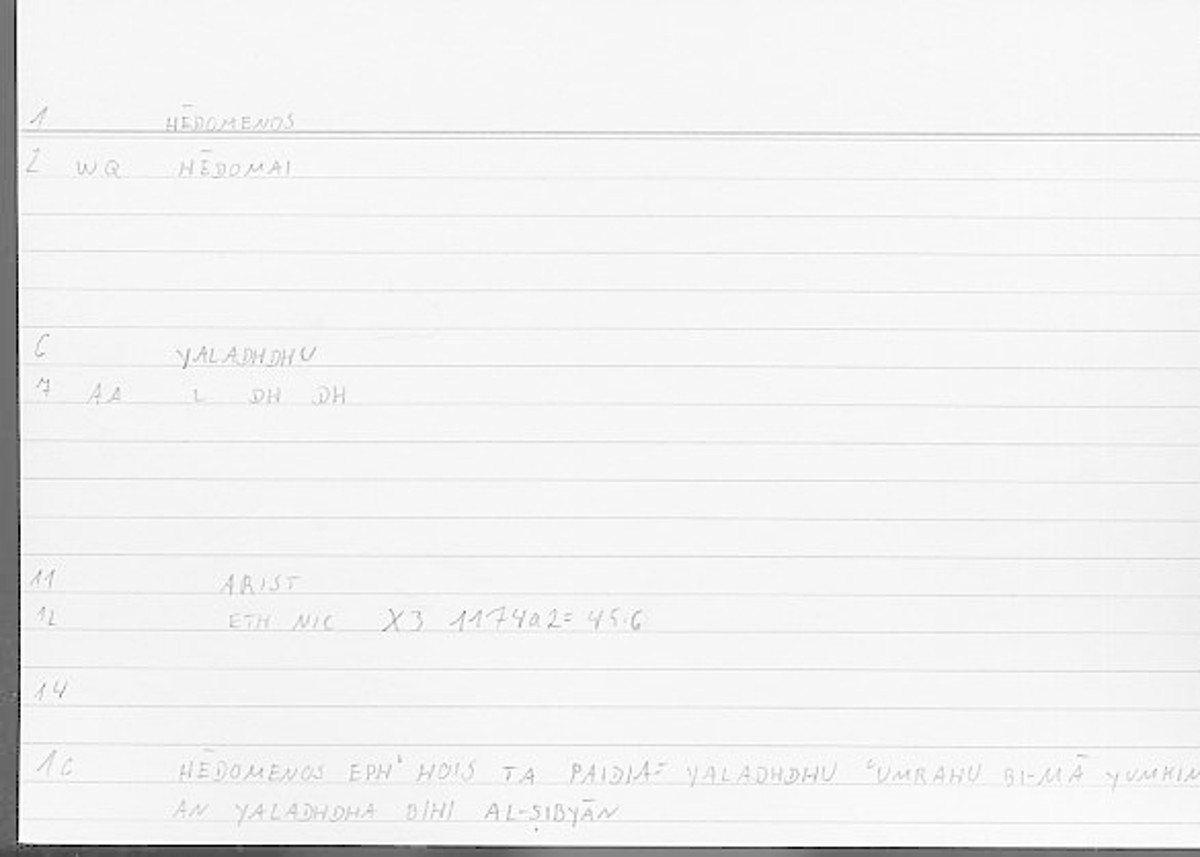 1 HĒDOMENOS
2 WQ HĒDOMAI
6 YALADHDHU
7 AA L DH DH
11 ARIST
12 ETH NIC X3 1174a2= 45.6
14
16 HĒDOMENOS EPH' HOIS TA PAIDIA= YALADHDHU ʿUMRAHU BI-MĀ YUMKIN
AN YALADHDHA BIHI AL-ṢIBYĀN